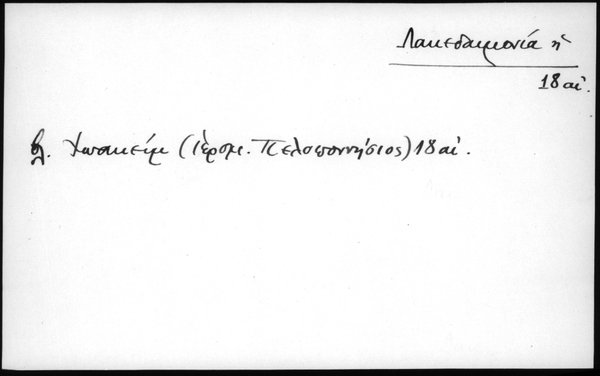 Λακεδαιμονία ἡ
18 αἰ.
βλ. Ἰωακείμ (ἱερομ. Πελοποννήσιος) 18 αἰ.